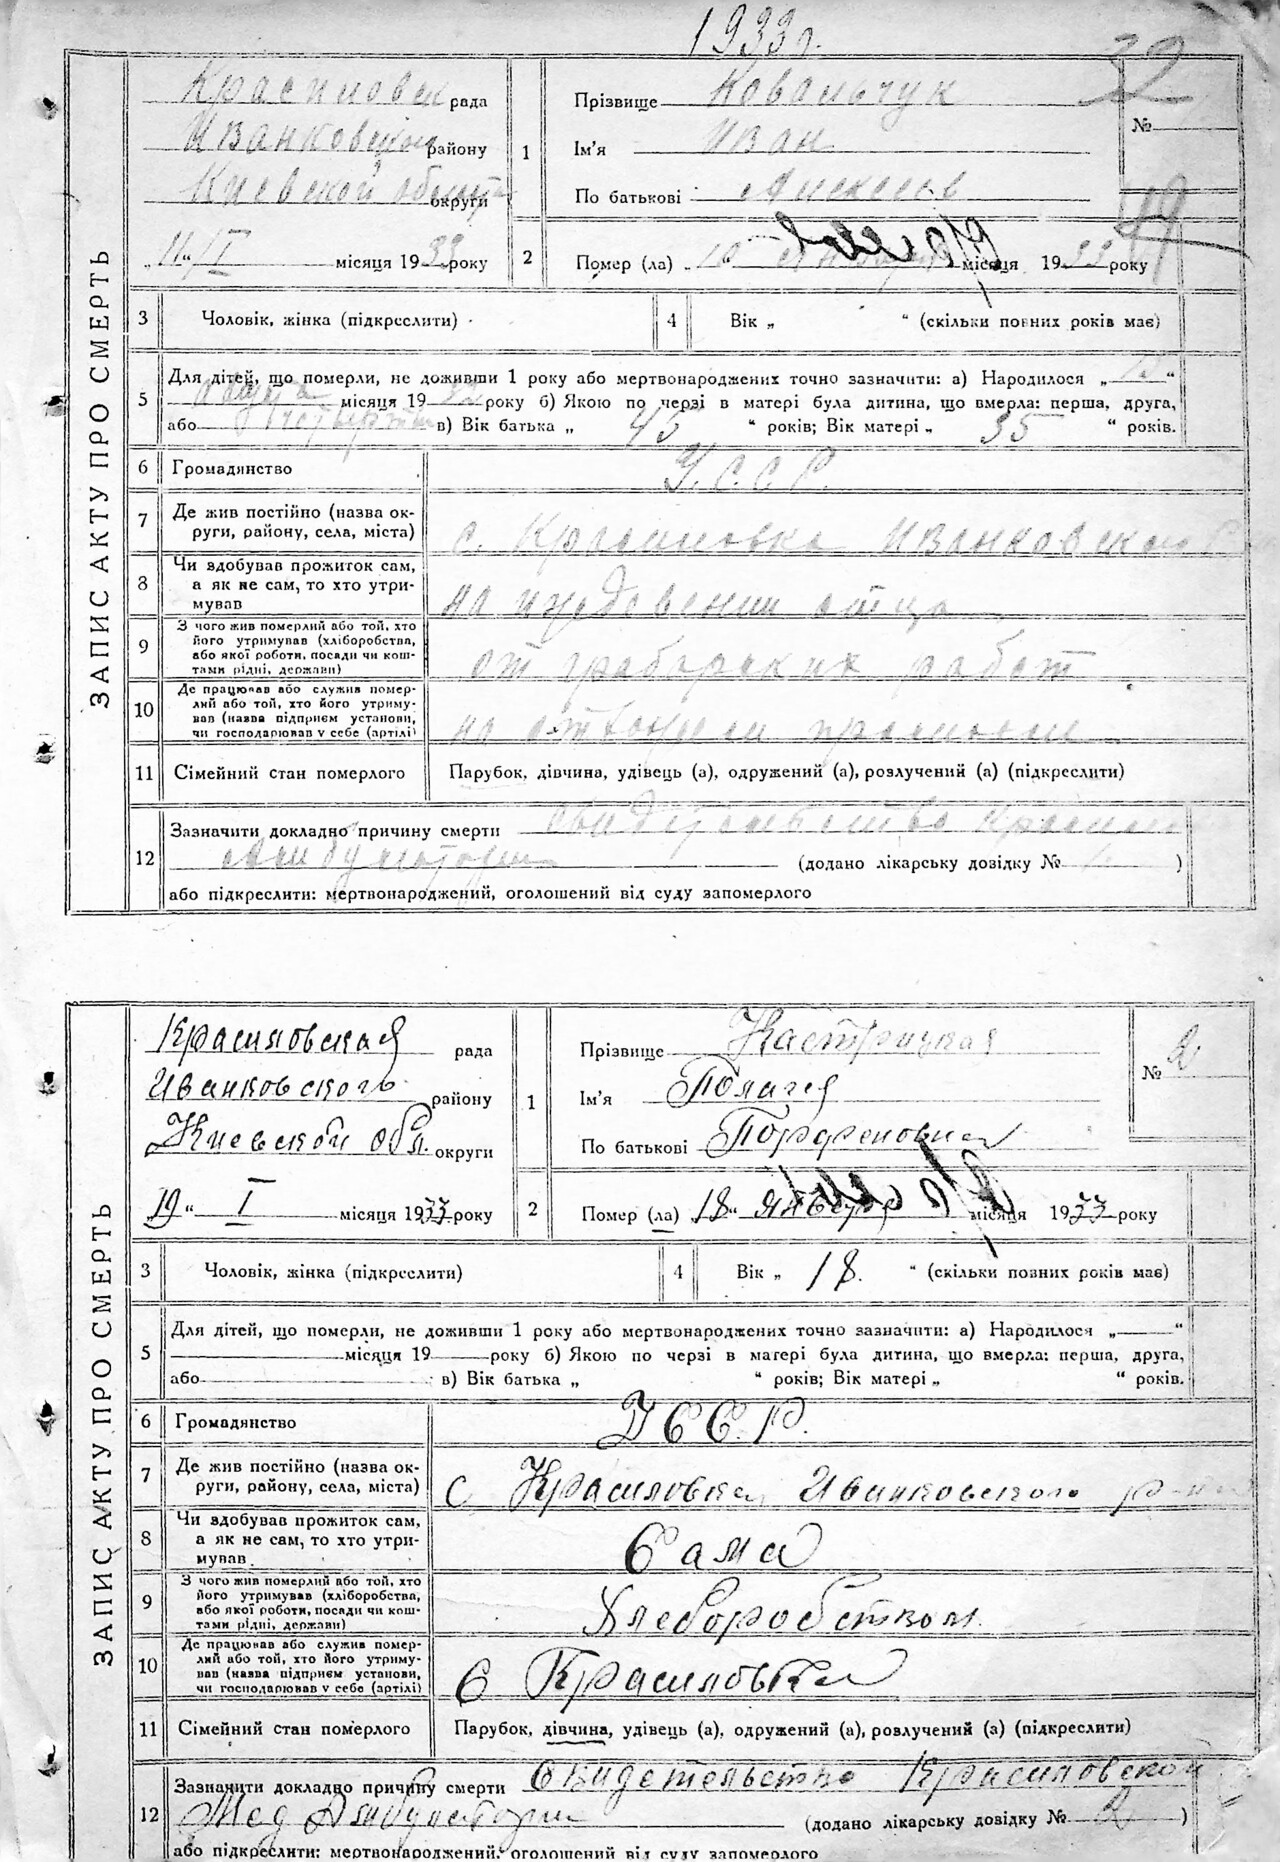 1933 г.
32
ЗАПИС АКТУ ПРО СМЕРТЬ
Красиловск рада
Иванковского району
Киевской области округи
„11“/I місяця 1933 року
1
Прізвище Ковальчук
Ім'я Иван
По батькові Алексеев
№
19
2 Помер (ла) „10 января місяця 1933 року
3 Чоловік, жінка (підкреслити)
4 Вік „ “ (скільки повних років має)
5 Для дітей, що померли, не доживши 1 року або мертвонароджених точно зазначити: а) Народилося „ “
місяця 19 року б) Якою по черзі в матері була дитина, що вмерла: перша, друга,
або четверта в) Вік батька „ 45 “ років; Вік матері „ 35 “ років.
6 Громадянство У.С.С.Р.
7 Де жив постійно (назва округи, району, села, міста) с. Красиловка Иванковского
8 Чи здобував прожиток сам, а як не сам, то хто утримував на иждевении отца
9 З чого жив померлий або той, хто його утримував (хліборобства, або якої роботи, посади чи коштами рідні, держави) от грабарских работ
10 Де працював або служив померлий або той, хто його утримував (назва підприєм установи, чи господарював у себе (артілі) на
11 Сімейний стан померлого Парубок, дівчина, удівець (а), одружений (а), розлучений (а) (підкреслити)
12 Зазначити докладно причину смерти свидетельство Красилов
Амбулатории (додано лікарську довідку № )
або підкреслити: мертвонароджений, оголошений від суду запомерлого
ЗАПИС АКТУ ПРО СМЕРТЬ
Красиловская рада
Иванковского району
Киевской обл. округи
19 “ I місяця 1933 року
1
Прізвище Кастрицкая
Ім'я Полагея
По батькові Порфеновна
№ 2
2 Помер (ла) 18 “ января місяця 1933 року
3 Чоловік, жінка (підкреслити)
4 Вік „ 18. “ (скільки повних років має)
5 Для дітей, що померли, не доживши 1 року або мертвонароджених точно зазначити: а) Народилося „ “
місяця 19 року б) Якою по черзі в матері була дитина, що вмерла: перша, друга,
або в) Вік батька „ “ років; Вік матері „ “ років.
6 Громадянство УССР.
7 Де жив постійно (назва округи, району, села, міста) с Красиловка Иванковского р-на
8 Чи здобував прожиток сам, а як не сам, то хто утримував Сама
9 З чого жив померлий або той, хто його утримував (хліборобства, або якої роботи, посади чи коштами рідні, держави) Хлеборобством
10 Де працював або служив померлий або той, хто його утримував (назва підприєм установи, чи господарював у себе (артілі) с Красиловка
11 Сімейний стан померлого Парубок, дівчина, удівець (а), одружений (а), розлучений (а) (підкреслити)
12 Зазначити докладно причину смерти Свидетельство Красиловской
Мед Амбулатории (додано лікарську довідку № 2 )
або підкреслити: мертвонароджений, оголошений від суду запомерлого